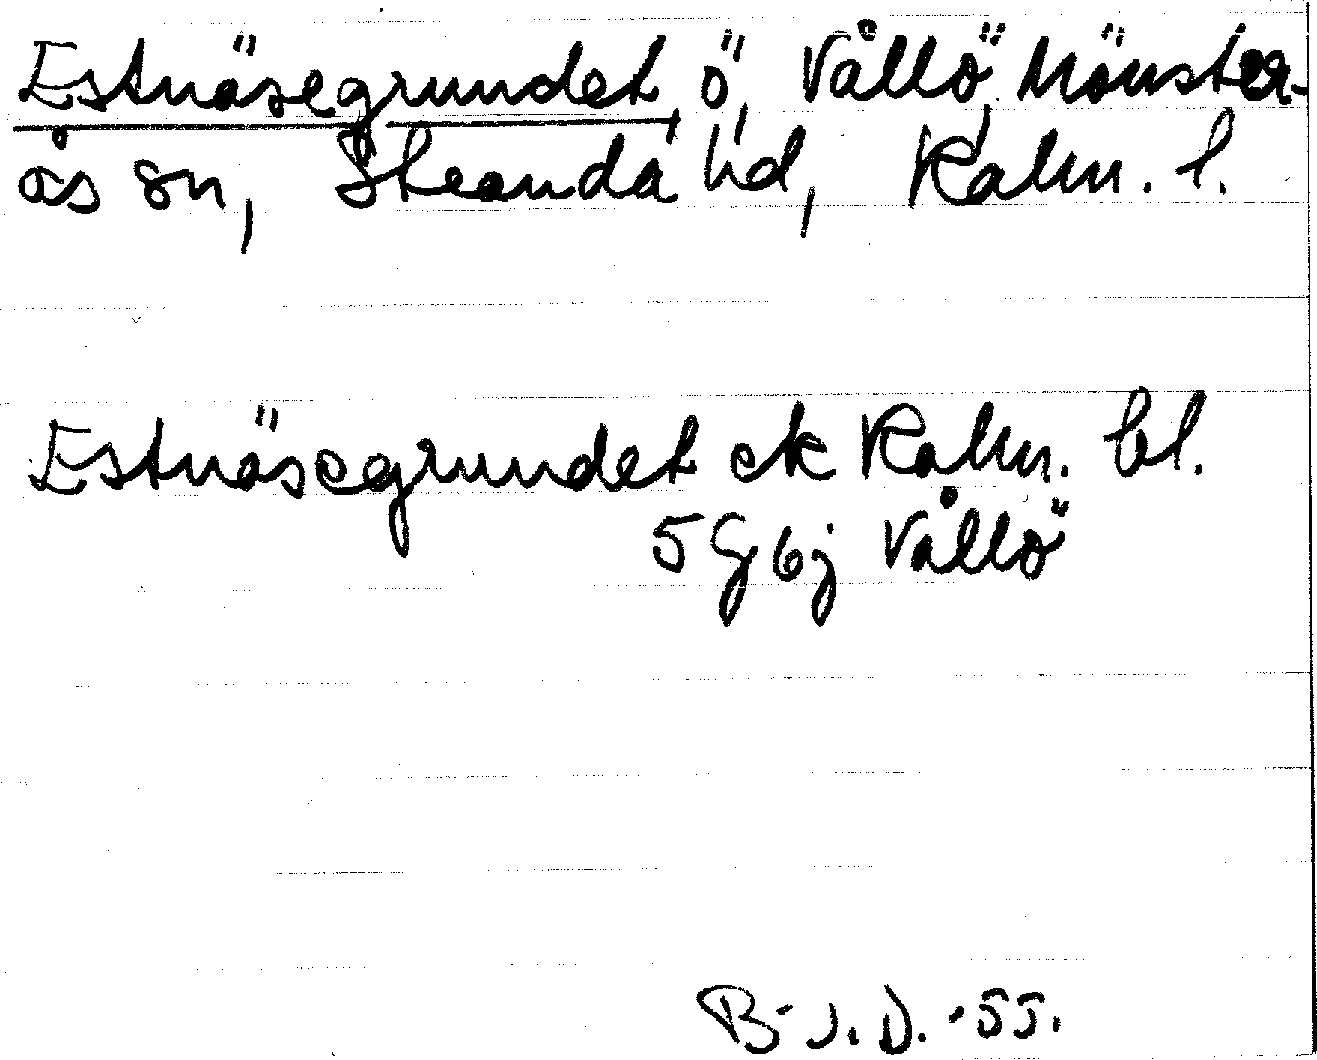 Estnäsegrundet, ö, Vållö, Mönster-
ås sn, Stranda hd, Kalm. l.
Estnäsegrundet ek Kalm. bl.
5 G 6j Vållö
B-J. D. -55.